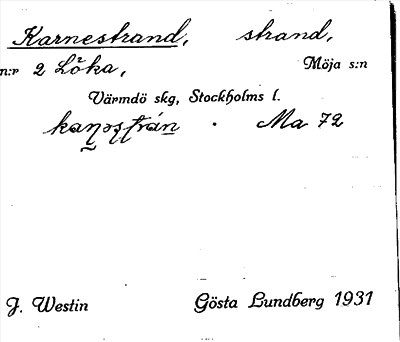 Karnestrand, strand,
n:r 2 Löka, Möja s:n
Värmdö skg, Stockholms l.
Ma 72
J. Westin Gösta Lundberg 1931